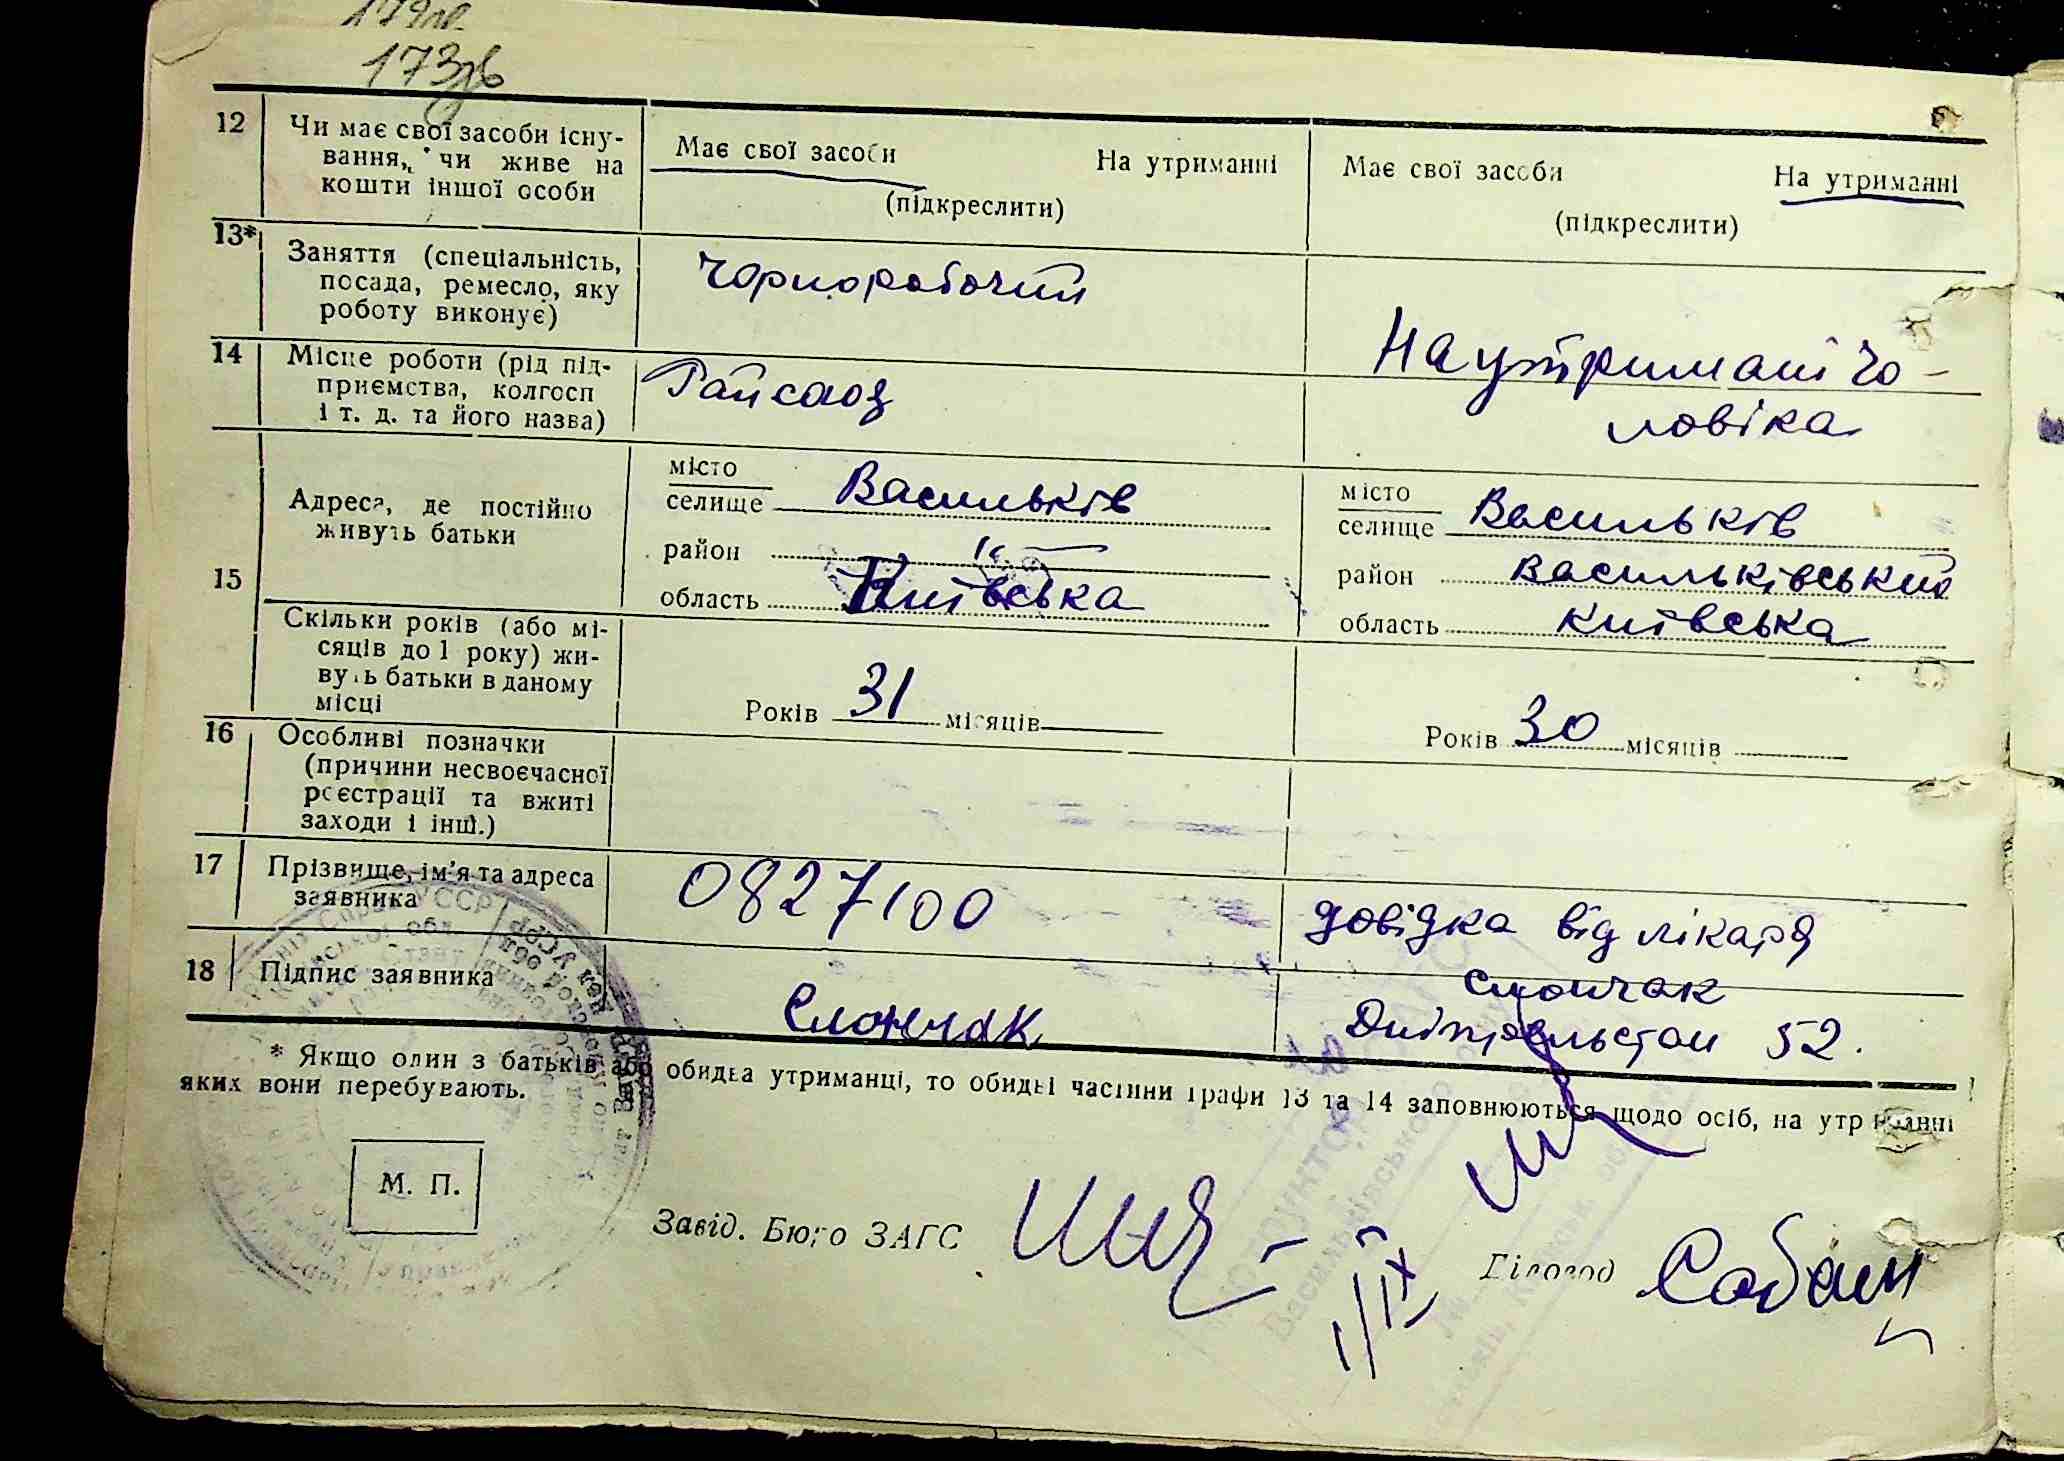 173зв
12 Чи має свої засоби існу- Має свої засоби На утриманні Має свої засоби На утриманні
вання, чи живе на
кошти іншої особи (підкреслити) (підкреслити)
13* Заняття (спеціальність, Чорноробочий
посада, ремесло, яку
роботу виконує) На утримані чо-
14 Місце роботи (рід під- Райсоюз
приємства, колгосп ловіка
і т. д. та його назва)
місто місто
Адреса, де постійно селище Васильків селище Васильків
живуть батьки район район Васильківський
15 область Київська область Київська
Скільки років (або мі-
сяців до 1 року) жи-
вуть батьки в даному
місці Років 31 місяців Років 30 місяців
16 Особливі позначки
(причини несвоєчасної
реєстрації та вжиті
заходи і інш.)
17 Прізвище, ім'я та адреса 0827100 довідка від лікаря
заявника
18 Підпис заявника Слончак Слончак
52.
* Якщо один з батьків або обидва утриманці, то обидві частини графи 13 та 14 заповнюються щодо осіб, на утриманні
яких вони перебувають.
М. П.
Завід. Бюро ЗАГС
1/IX
Діловод